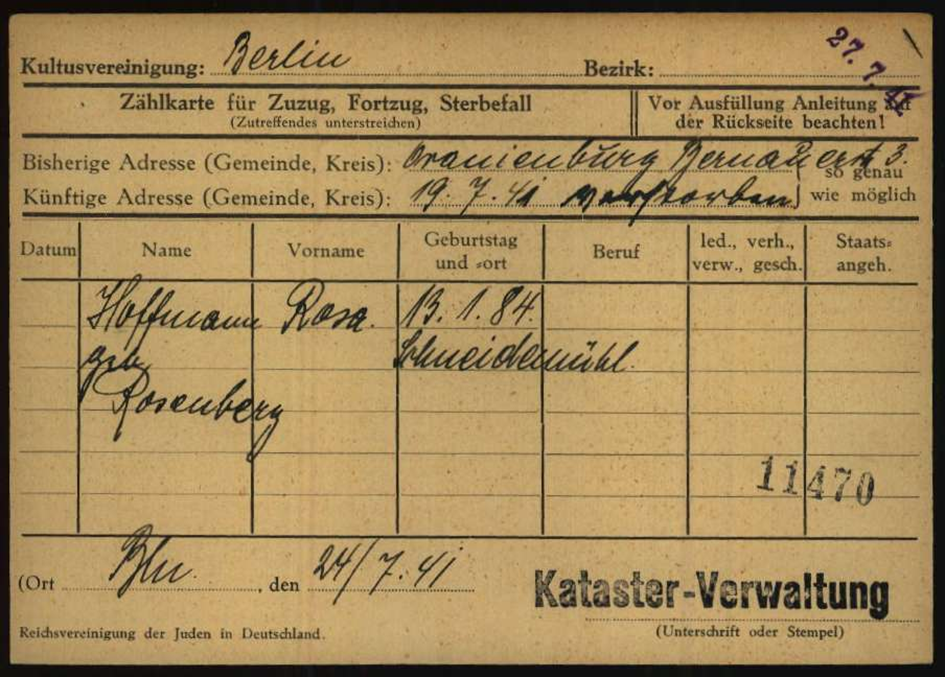 27. 7. 41
Kultusvereinigung: Berlin Bezirk:
Zählkarte für Zuzug, Fortzug, Sterbefall
(Zutreffendes unterstreichen)
Vor Ausfüllung Anleitung auf
der Rückseite beachten!
Bisherige Adresse (Gemeinde, Kreis): Oranienburg Bernauerstr 3.
Künftige Adresse (Gemeinde, Kreis): 19. 7. 41 verstorben
so genau
wie möglich
Datum Name Vorname Geburtstag und =ort Beruf led., verh., verw., gesch. Staats= angeh.
Hoffmann Rosa. 13. 1. 84.
geb. Schneidemühl.
Rosenberg
11470
(Ort Bln. , den 24/7. 41
Kataster-Verwaltung
Reichsvereinigung der Juden in Deutschland. (Unterschrift oder Stempel)